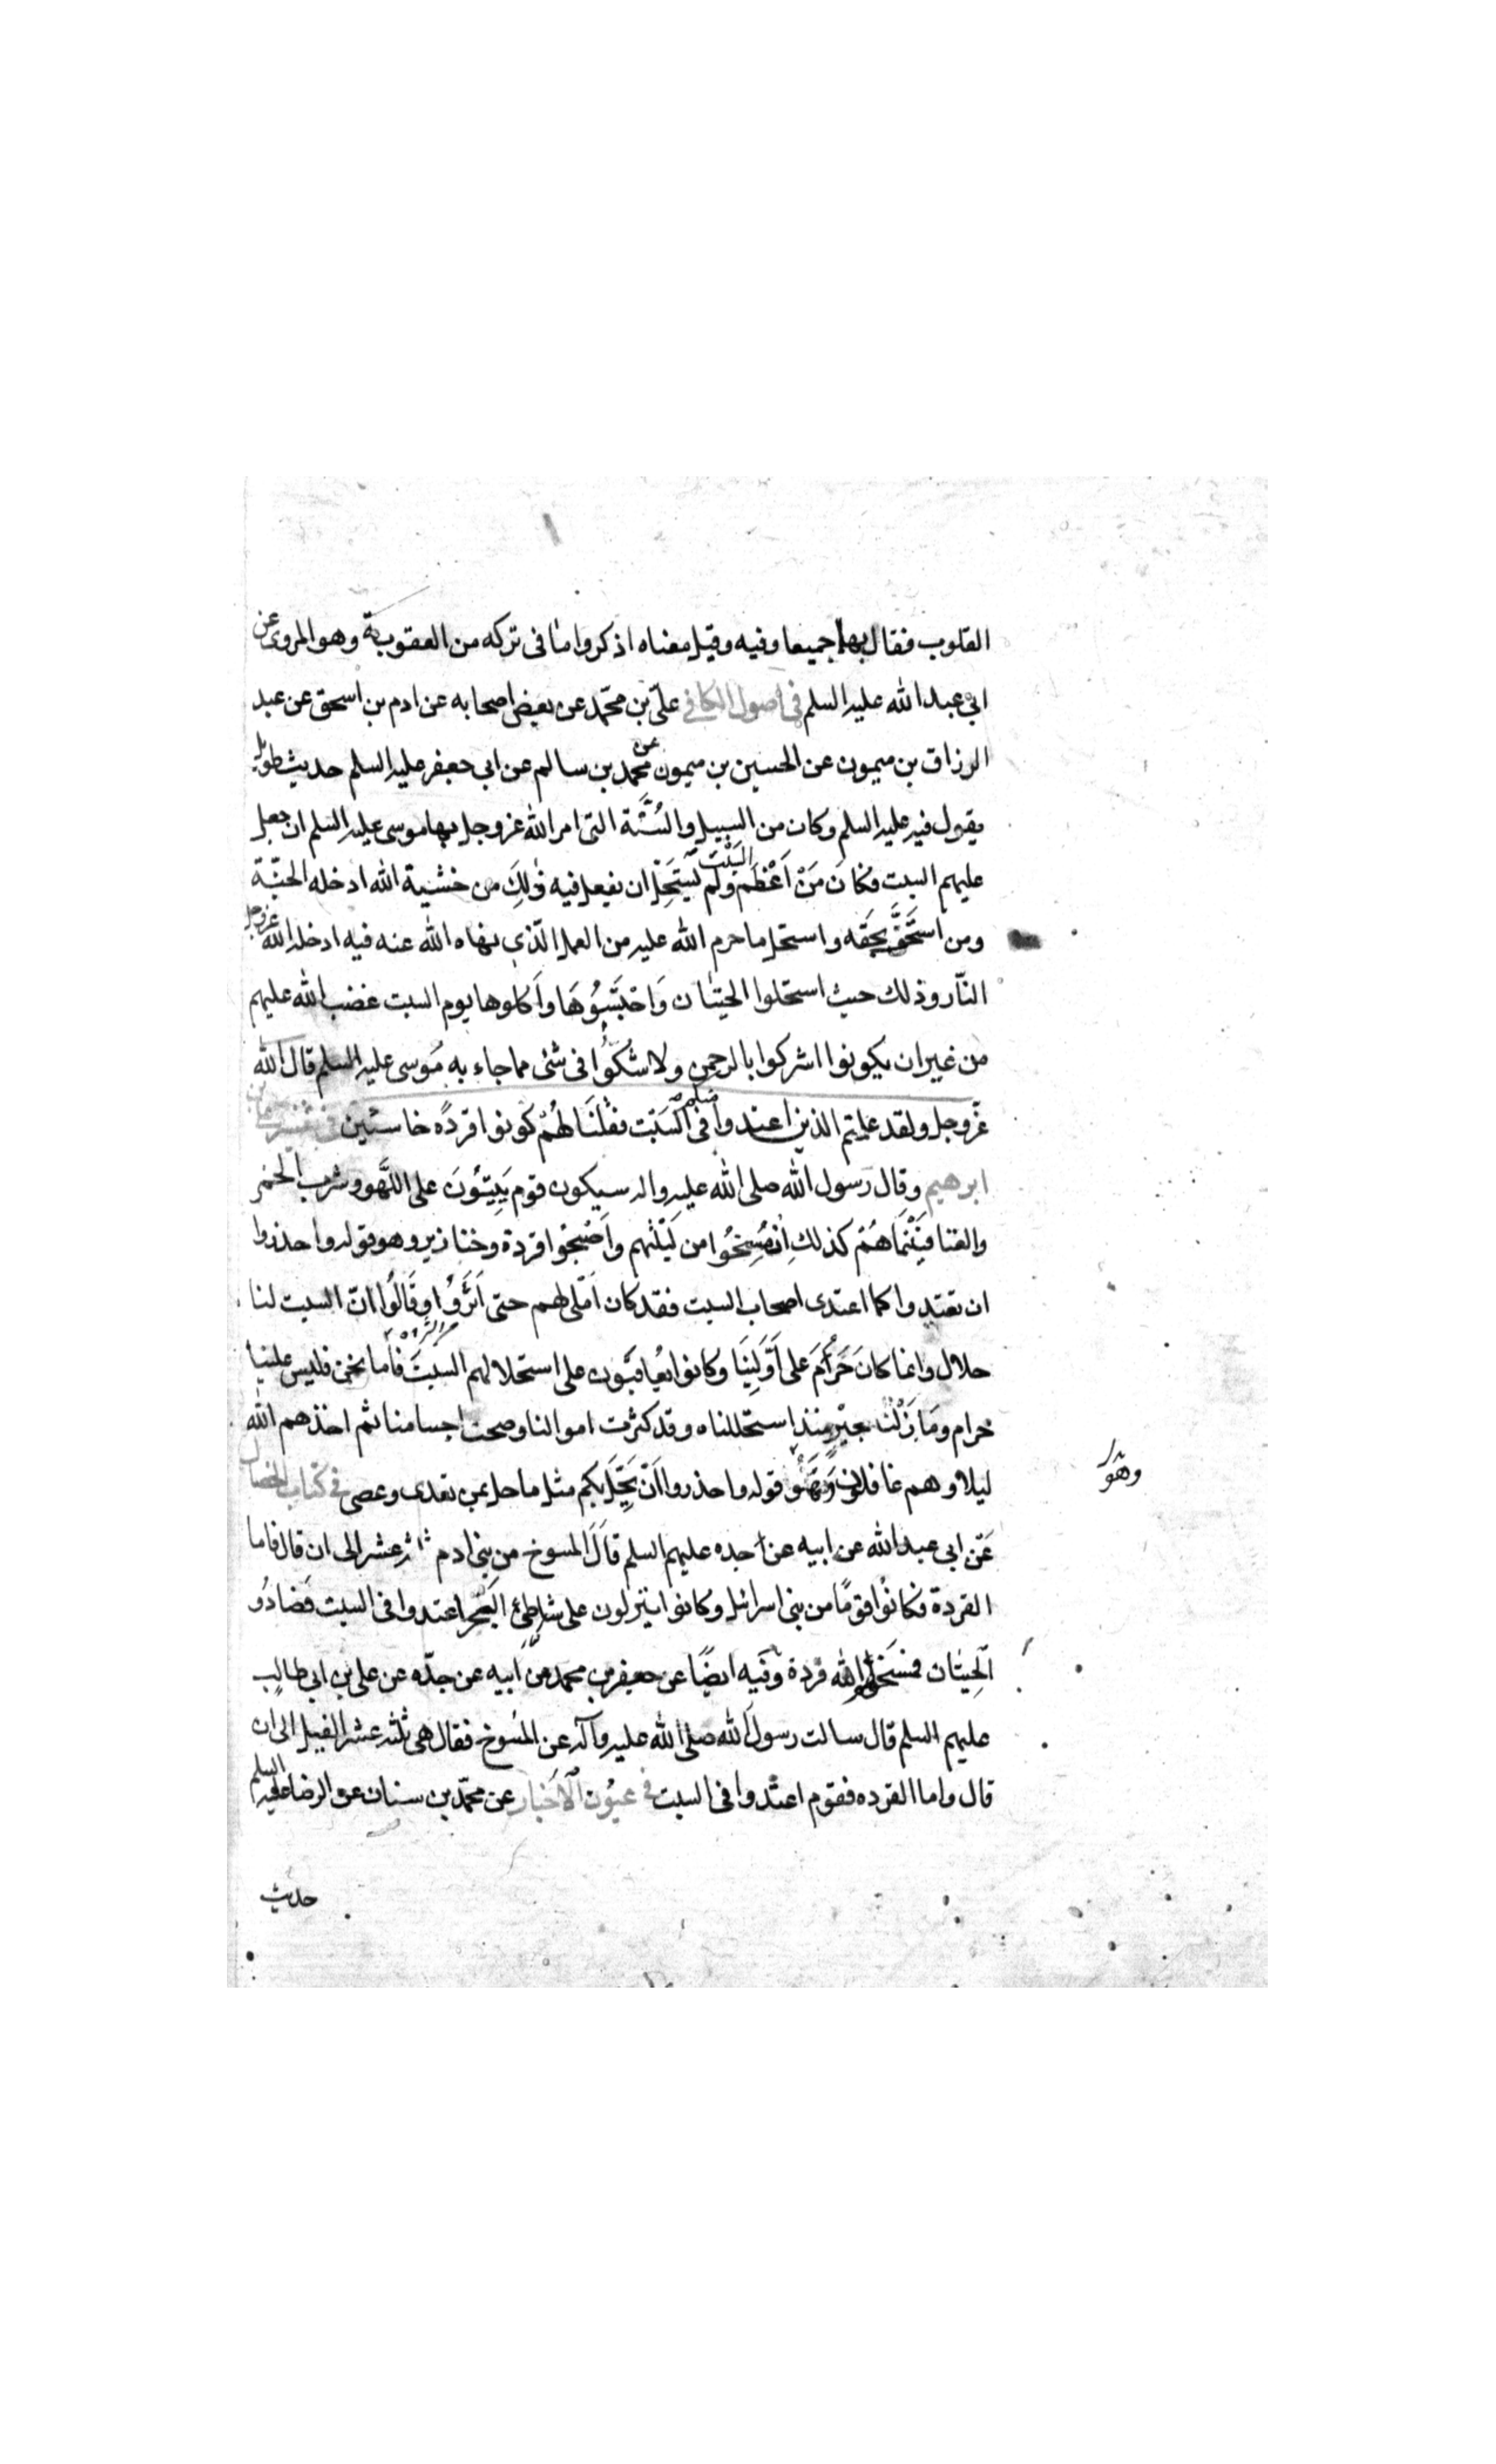 القلوب فقال بها جميعا وفيه وقيل معناه اذكروا ما فى تركه من العقوبة وهو المروى عن
ابي عبد الله عليه السلم في أصول الكافي علىّ بن محمّد عن بعض اصحابه عن ادم بن اسحق عن عبد
الرزاق بن ميمون عن الحسين بن ميمون عن محمد بن سالم عن ابي جعفر عليه السلم حديث طويل
يقول فيه عليه السلم وكان من السبيل والسُّنَّة التى امر الله عز وجل بها موسى عليه السلم ان جعل
عليهم السبت فكَانَ مَنْ اَعْظَم السَبْت ولم يَسْتَحِلّ ان يفعل فيه ذٰلِكَ من خشية الله ادخله الجنّة
ومن استَخَفَّ بِحَقِه واستحل ما حرم الله عليه من العمل الّذي نهاه الله عنه فيه ادخله الله عز وجل
النّار وذلك حيث استحلوا الحيتان وَاحْتَبَسُوُهَا واَكلوها يوم السبت غضب الله عليهم
من غير ان يكونوا اشركوا بالرحمن ولا شكُّوا فى شئ مما جاء به مُوسى عليه السلم قال الله
عَزّ وجل ولقد علمتم الذين اعتدوا منكم فى السَبت فقُلْنَا لهُمْ كونوا قردةً خاسئين في تفسير علي بن
ابرهيم وقال رسول الله صلى الله عليه واله سيكون قوم يَبِيتُونَ على اللَّهو وشرب الخمر
والغنا فبَيْنَمَا هُمْ كذلك اذ مُسِخُوا من لَيْلَتهم واَصْبَحُوا قردة وخنازير وهو قوله واحذروا
ان تعتدوا كما اعتدى اصحاب السبت فقد كان اَمْلى لهم حتى اَثَرُوا وقَالُوا انّ السبت لنا
حلال وانما كانَ حَرُمَ على اَوَّلِينَا وكانوا يُعَاقبَوُن على استحلالهم السَبْتَ فَأما نحن فليس علينا
حرام ومَا زِلْنا بخيْر منذ استحللناه وقد كثرت اموالنا وصحت اجسامنا ثم اخذهم الله
ليلا وهم غافلون وهُوَ قوله واحذروا اَنْ يَحِلّ بكم مثل ما حل بمن تعدى وعصى في كتاب الخصال
وهُوَ
عَن ابى عبد الله عن ابيه عن جده عليهم السلم قَالَ المسوخ من بني ادم ثلثة عشر الى ان قال فاما
القردة فكانُوا قومًا من بنى اسرائيل وكانوا ينزلون على شاطِئ البَحْر اعتدوا فى السبت فَصَادُو
الحِيتان فمسَخَهُم الله قردة وَفيه ايضًا عن جعفر بن محمد عن ابيه عن جدّه عن على بن ابى طالب
عليهم السلم قال سالت رسول الله صلى الله عليه وآله عن المسُوخ فقال هى ثلثه عشر الفيل الى ان
قال واما القرده فقوم اعتدوا فى السبت في عيُون الأخبار عن محمّد بن سنان عن الرضا عليه السلم
حديث